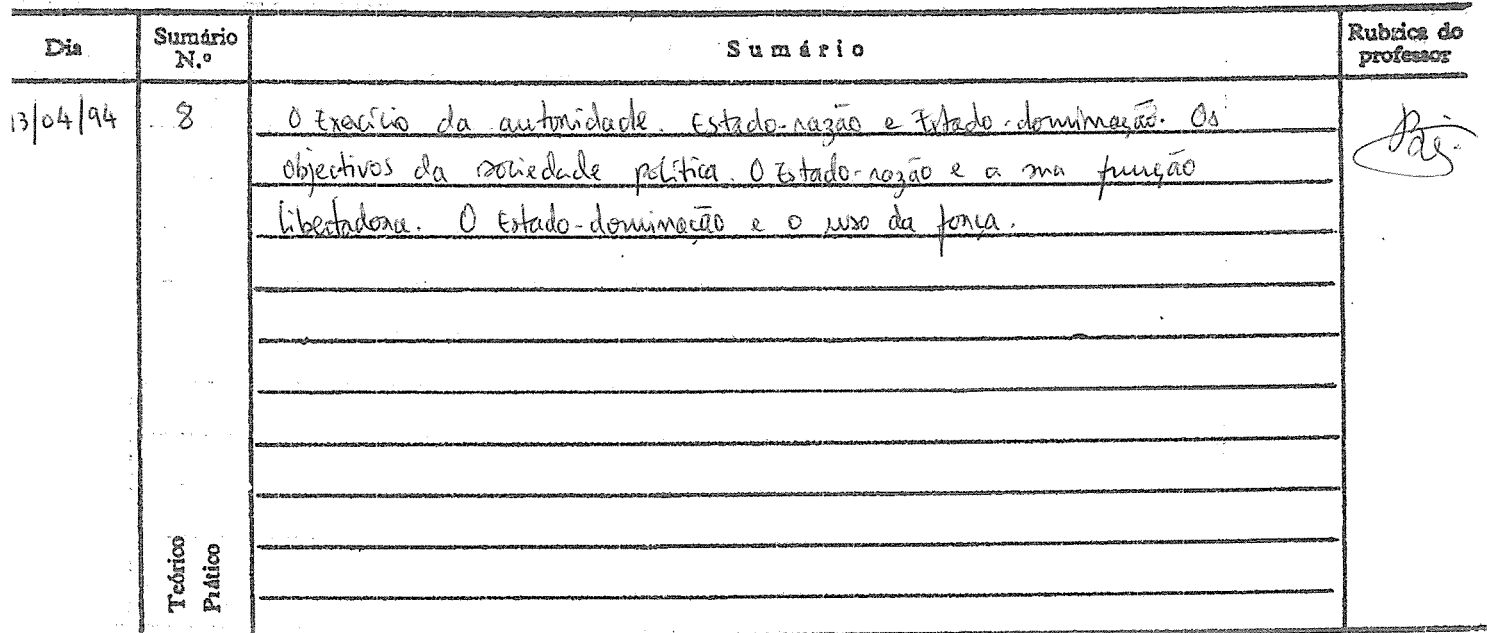 Dia Sumário N.º Sumário Rubrica do professor
13/04/94 8 O Exercício da autoridade. Estado-razão e Estado-dominação. Os
objectivos da sociedade política. O Estado-razão e a sua função
libertadora. O Estado-dominação e o uso da força.
Teórico
Prático